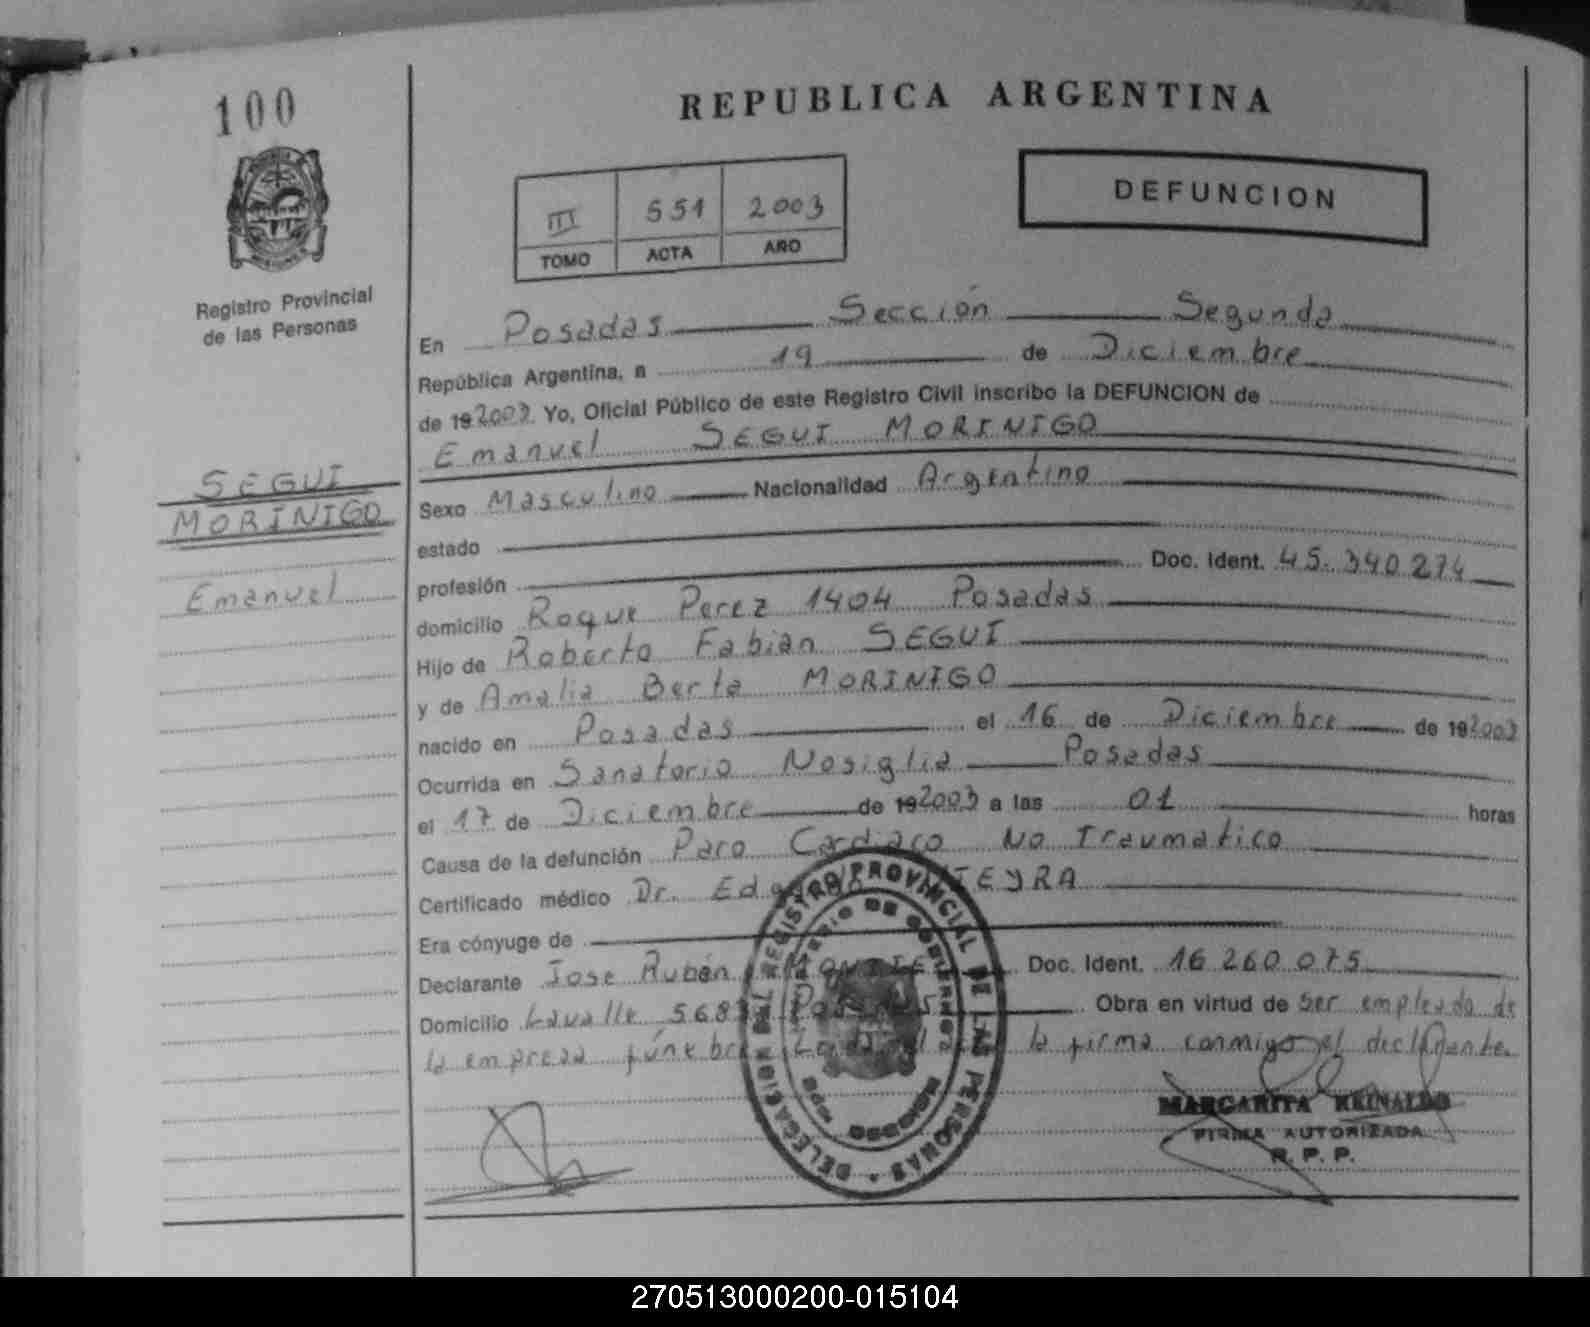 100
REPUBLICA ARGENTINA
DEFUNCION
III 551 2003
TOMO ACTA AÑO
Registro Provincial
de las Personas
En Posadas Sección Segunda
República Argentina, a 19 de Diciembre
de 19 2003 Yo, Oficial Público de este Registro Civil inscribo la DEFUNCION de
Emanuel SEGUI MORINIGO
SEGUI
MORINIGO
Emanuel
Sexo Masculino Nacionalidad Argentino
estado
profesión Doc. Ident. 45.340.274
domicilio Roque Perez 1404 Posadas
Hijo de Roberto Fabian SEGUI
y de Amalia Berta MORINIGO
nacido en Posadas el 16 de Diciembre de 19 2003
Ocurrida en Sanatorio Nosiglia Posadas
el 17 de Diciembre de 19 2003 a las 01 horas
Causa de la defunción Paro Cardiaco No Traumatico
Certificado médico Dr.
Era cónyuge de
Declarante Jose Rubén Doc. Ident. 16 260 075
Domicilio Lavalle 5683 Posadas Obra en virtud de ser empleado de
la empresa fúnebre la firma conmigo el declarante.
DELEGACION DEL REGISTRO PROVINCIAL DE LAS PERSONAS
MARGARITA REINALDO
FIRMA AUTORIZADA
R. P. P.
270513000200-015104